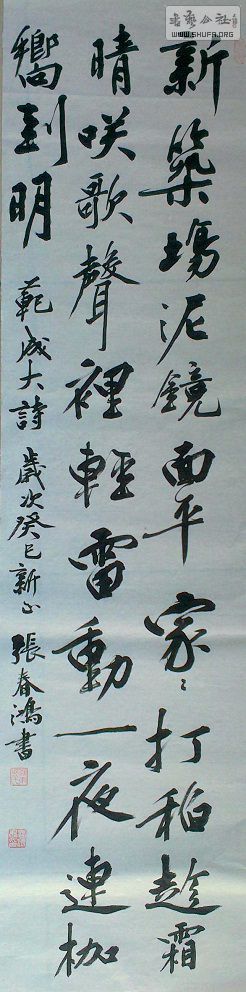 新築場泥鏡面平家〻打稻趁霜
晴咲歌聲裡輕雷動一夜連枷
嚮到明
範成大詩 歲次癸巳新正 張春鴻書
WWW.SHUFA.ORG